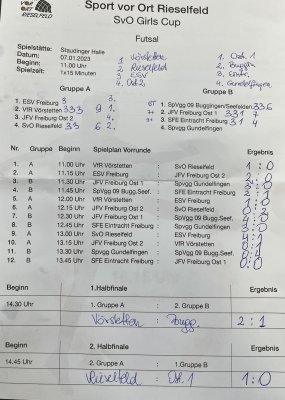 SPORT VOR ORT RIESELFELD
Sport vor Ort Rieselfeld
SvO Girls Cup
Futsal
Spielstätte: Staudinger Halle
Datum: 07.01.2023
Beginn: 11.00 Uhr
Spielzeit: 1x15 Minuten
1 Vörstetten 1 Ost. 1
2 Rieselfeld 2 Bugg.
3 ESV 3 Eintr.
4 Ost. 2 4 Gundelfingen
Gruppe A Gruppe B
1. ESV Freiburg 3 1. SpVgg 09 Buggingen/Seefelden 3 3 6
2. VfR Vörstetten 3 3 3 9 1. 2. JFV Freiburg Ost 1 3 3 1 7
3. JFV Freiburg Ost 2 3. SFE Eintracht Freiburg 3 1 4
4. SvO Rieselfeld 3 3 6 2. 4. Spvgg Gundelfingen
Nr. Gruppe Beginn Spielplan Vorrunde Ergebnis
1. A 11.00 Uhr VfR Vörstetten : SvO Rieselfeld 1:0
2. A 11.15 Uhr ESV Freiburg : JFV Freiburg Ost 2
3. B 11.30 Uhr JFV Freiburg Ost 1 : Spvgg Gundelfingen
4. B 11.45 Uhr SpVgg 09 Bugg.Seef. : SFE Eintracht Freiburg
5. A 12.00 Uhr VfR Vörstetten : ESV Freiburg
6. A 12.15 Uhr SvO Rieselfeld : JFV Freiburg Ost 2
7. B 12.30 Uhr JFV Freiburg Ost 1 : SpVgg 09 Bugg.Seef.
8. B 12.45 Uhr SFE Eintracht Freiburg : Spvgg Gundelfingen
9. A 13.00 Uhr SvO Rieselfeld : ESV Freiburg
10. A 13.15 Uhr JFV Freiburg Ost 2 : VfR Vörstetten
11. B 13.30 Uhr Spvgg Gundelfingen : SpVgg 09 Bugg.Seef.
12. B 13.45 Uhr SFE Eintracht Freiburg : JFV Freiburg Ost 1 0:0
Beginn 1.Halbfinale Ergebnis
14.30 Uhr 1. Gruppe A : 2. Gruppe B
Vörstetten : Bugg. 2:1
Beginn 2. Halbfinale Ergebnis
14.45 Uhr 2. Gruppe A : 1.Gruppe B
Rieselfeld : Ost. 1 1:0